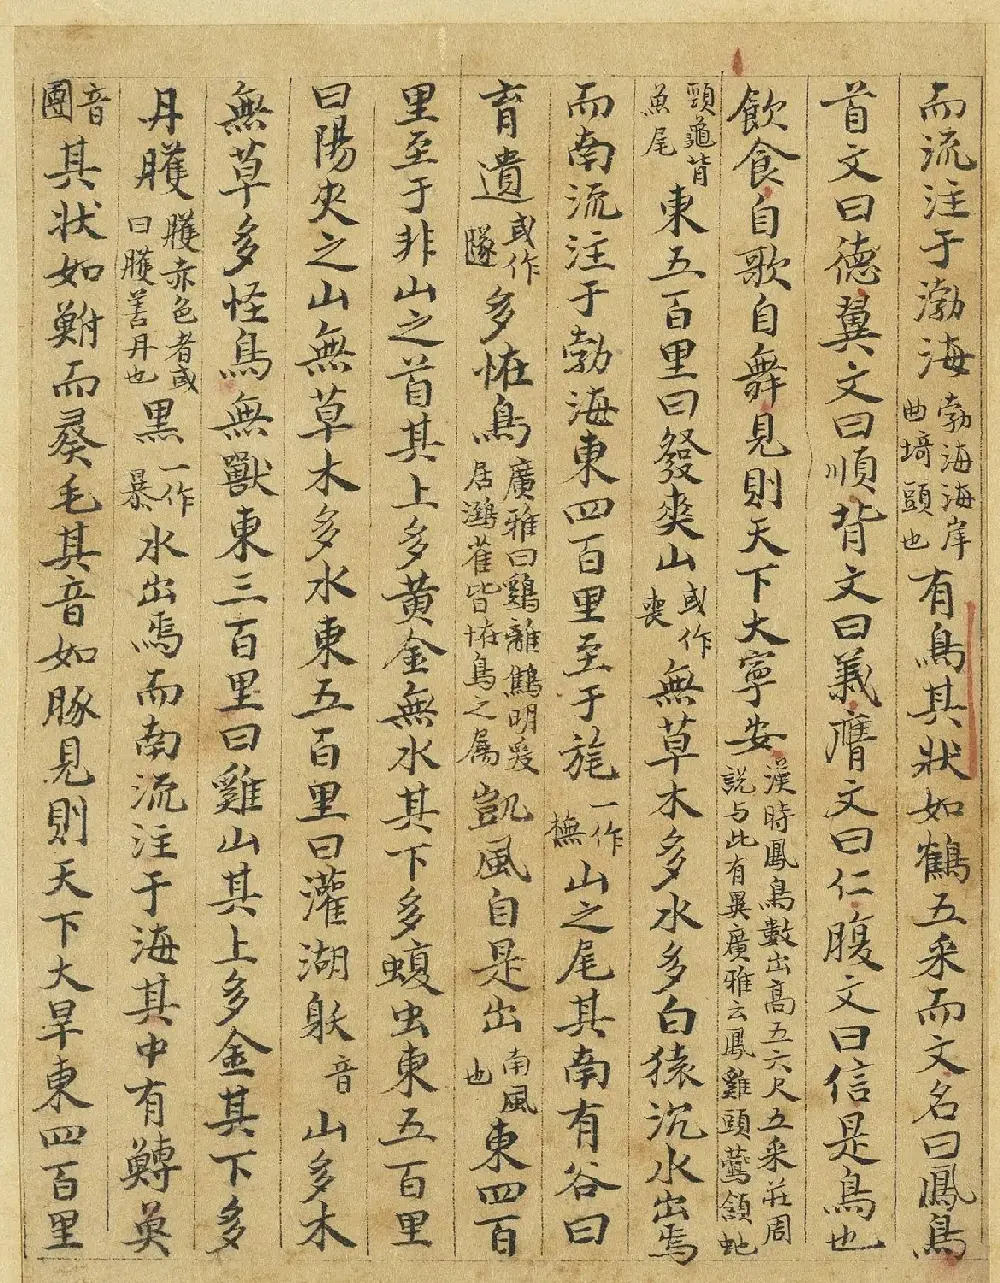 而流注于渤海勃海海岸曲埼頭也有鳥其狀如鶴五采而文名曰鳳鳥
首文曰德翼文曰順背文曰義膺文曰仁腹文曰信是鳥也
飲食自歌自舞見則天下大寧安漢時鳳鳥數出高五六尺五采莊周說与此有異廣雅云鳳雞頭鷰頷虵
頸龜背魚尾東五百里曰發爽山或作喪無草木多水多白猿沉水出焉
而南流注于勃海東四百里至于旄一作橆山之尾其南有谷曰
育遺或作隧多恠鳥廣雅曰鷄離鷦明爰居鵕雀皆恠鳥之屬凱風自是出南風也東四百
里至于非山之首其上多黃金無水其下多蝮虫東五百里
曰陽夾之山無草木多水東五百里曰灌湖躲音山多木
無草多怪鳥無獸東三百里曰雞山其上多金其下多
丹臒臒赤色者或曰臒善丹也黑一作暴水出焉而南流注于海其中有鱄魚
音團其狀如鮒而彘毛其音如豚見則天下大旱東四百里